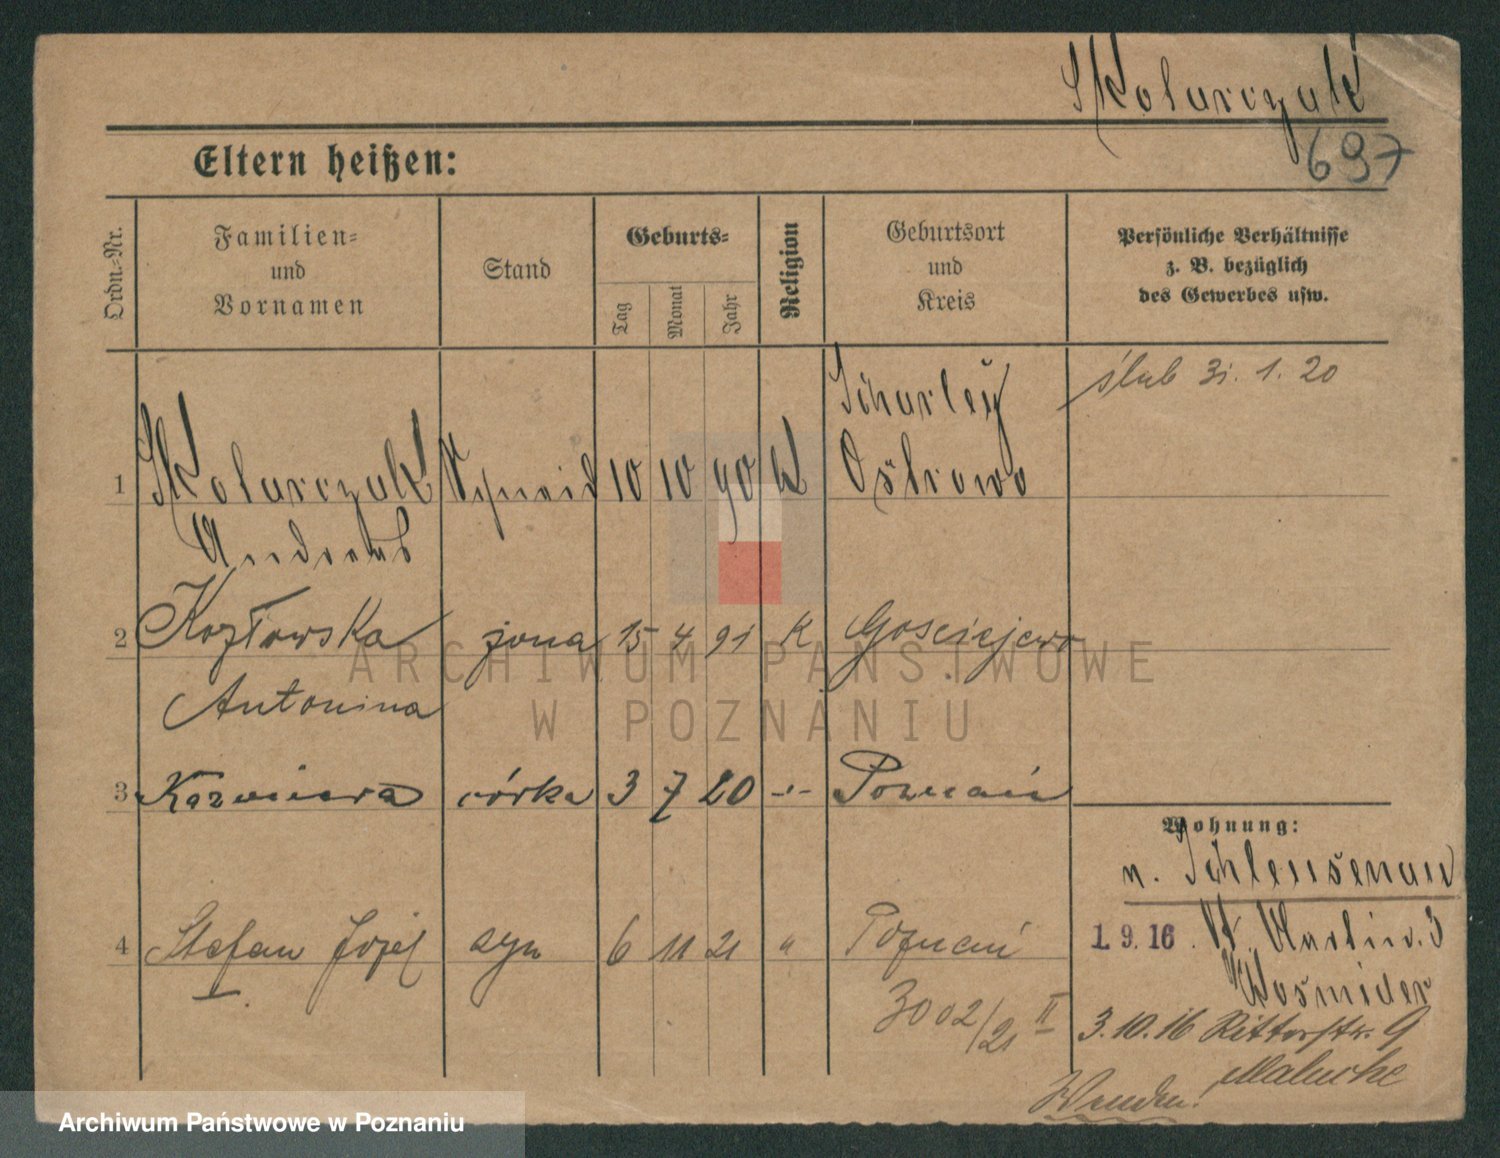 Skolarczak
697
Eltern heißen:
Ordn.=Nr.
Familien=
und
Vornamen
Stand
Geburts=
Tag
Monat
Jahr
Religion
Geburtsort
und
Kreis
Persönliche Verhältnisse
z. B. bezüglich
des Gewerbes usw.
ślub 31. 1. 20
Scharley
1 Skolarczak 10 10 90 k Ostrowo
Andreas
2 Kozłowska żona 15 4 91 K Gosciejewo
Antonina
3 Kazimiera córka 3 7 20 -"- Poznań
Wohnung:
n. Schleusenau
4 Stefan Józef syn 6 11 21 " Poznań
1. 9. 16. St. Martin. 3
I.
3002/21 II
3. 10. 16 Ritterstr. 9
Malucke
Wenden!
ARCHIWUM PAŃSTWOWE
W POZNANIU
Archiwum Państwowe w Poznaniu